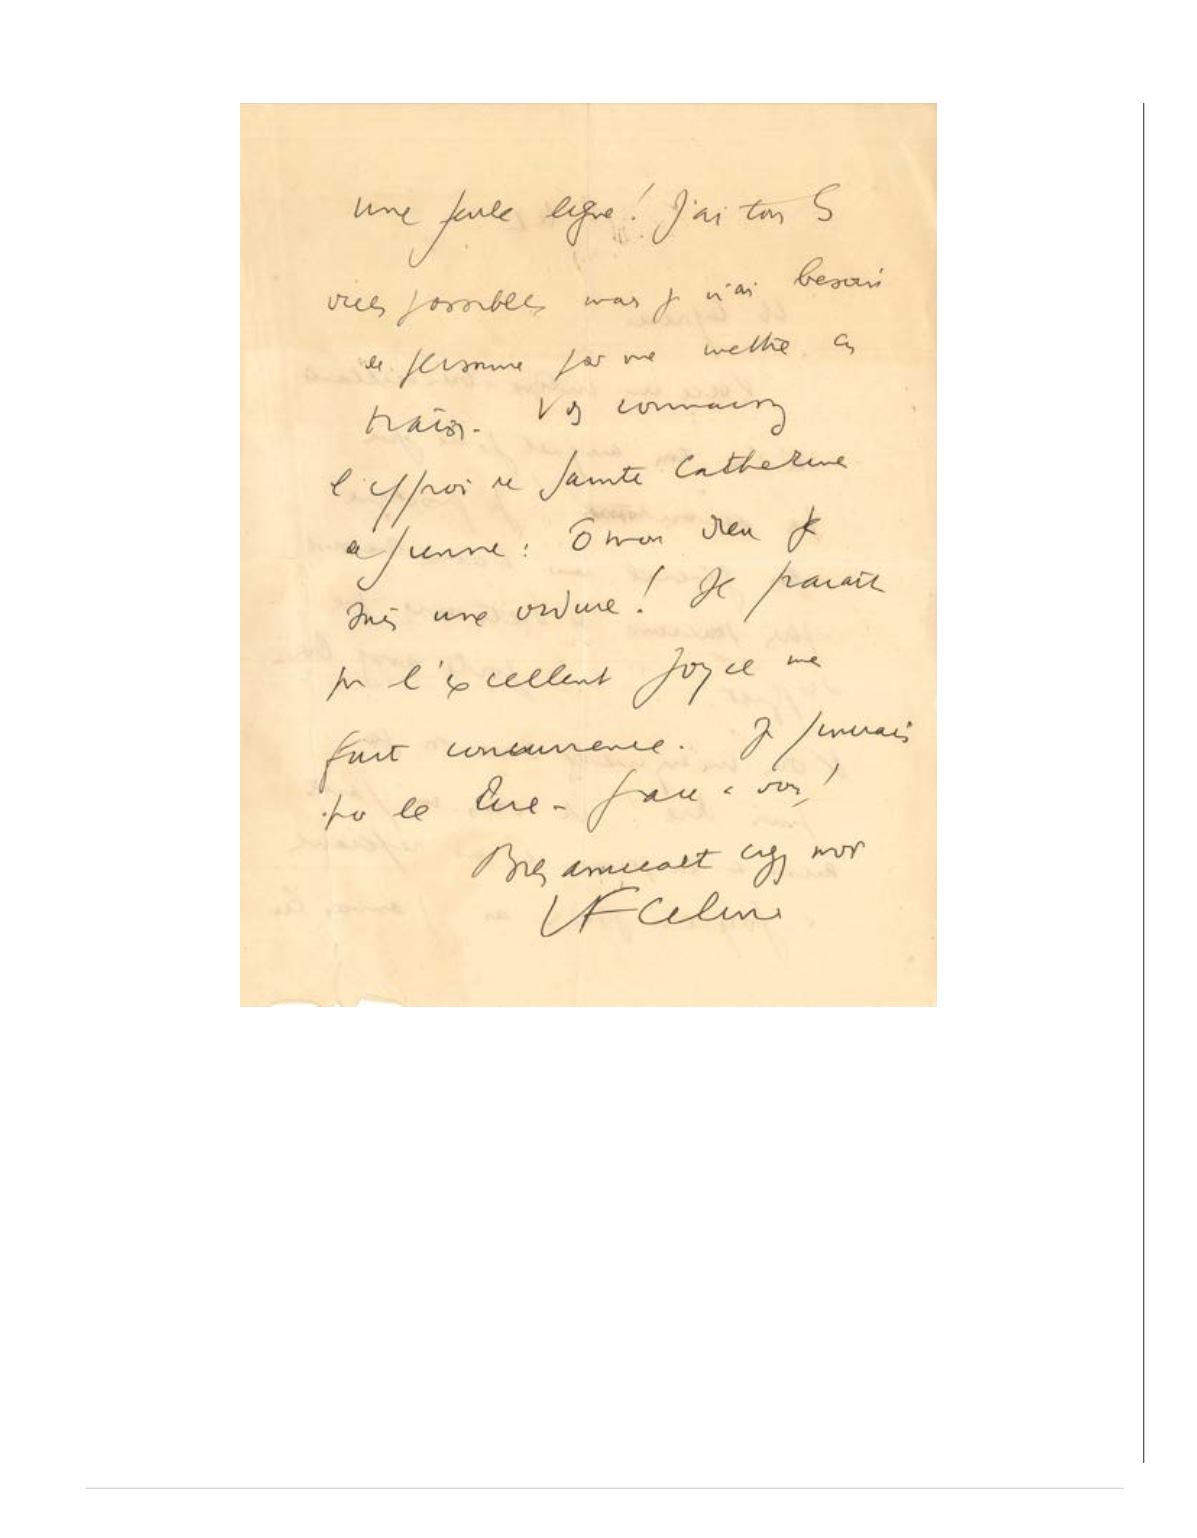 une seule ligne! J'ai tous les
vices possibles mais je n'ai besoin
de personne pour me mettre en
train. Vous connaissez
l'effroi de Sainte Catherine
de Sienne: O mon dieu je
suis une ordure! Je parait
que l'excellent Joyce me
fait concurrence. Je
pas le lire - grace à vous!
Bien amicalt chez moi
LF Celine